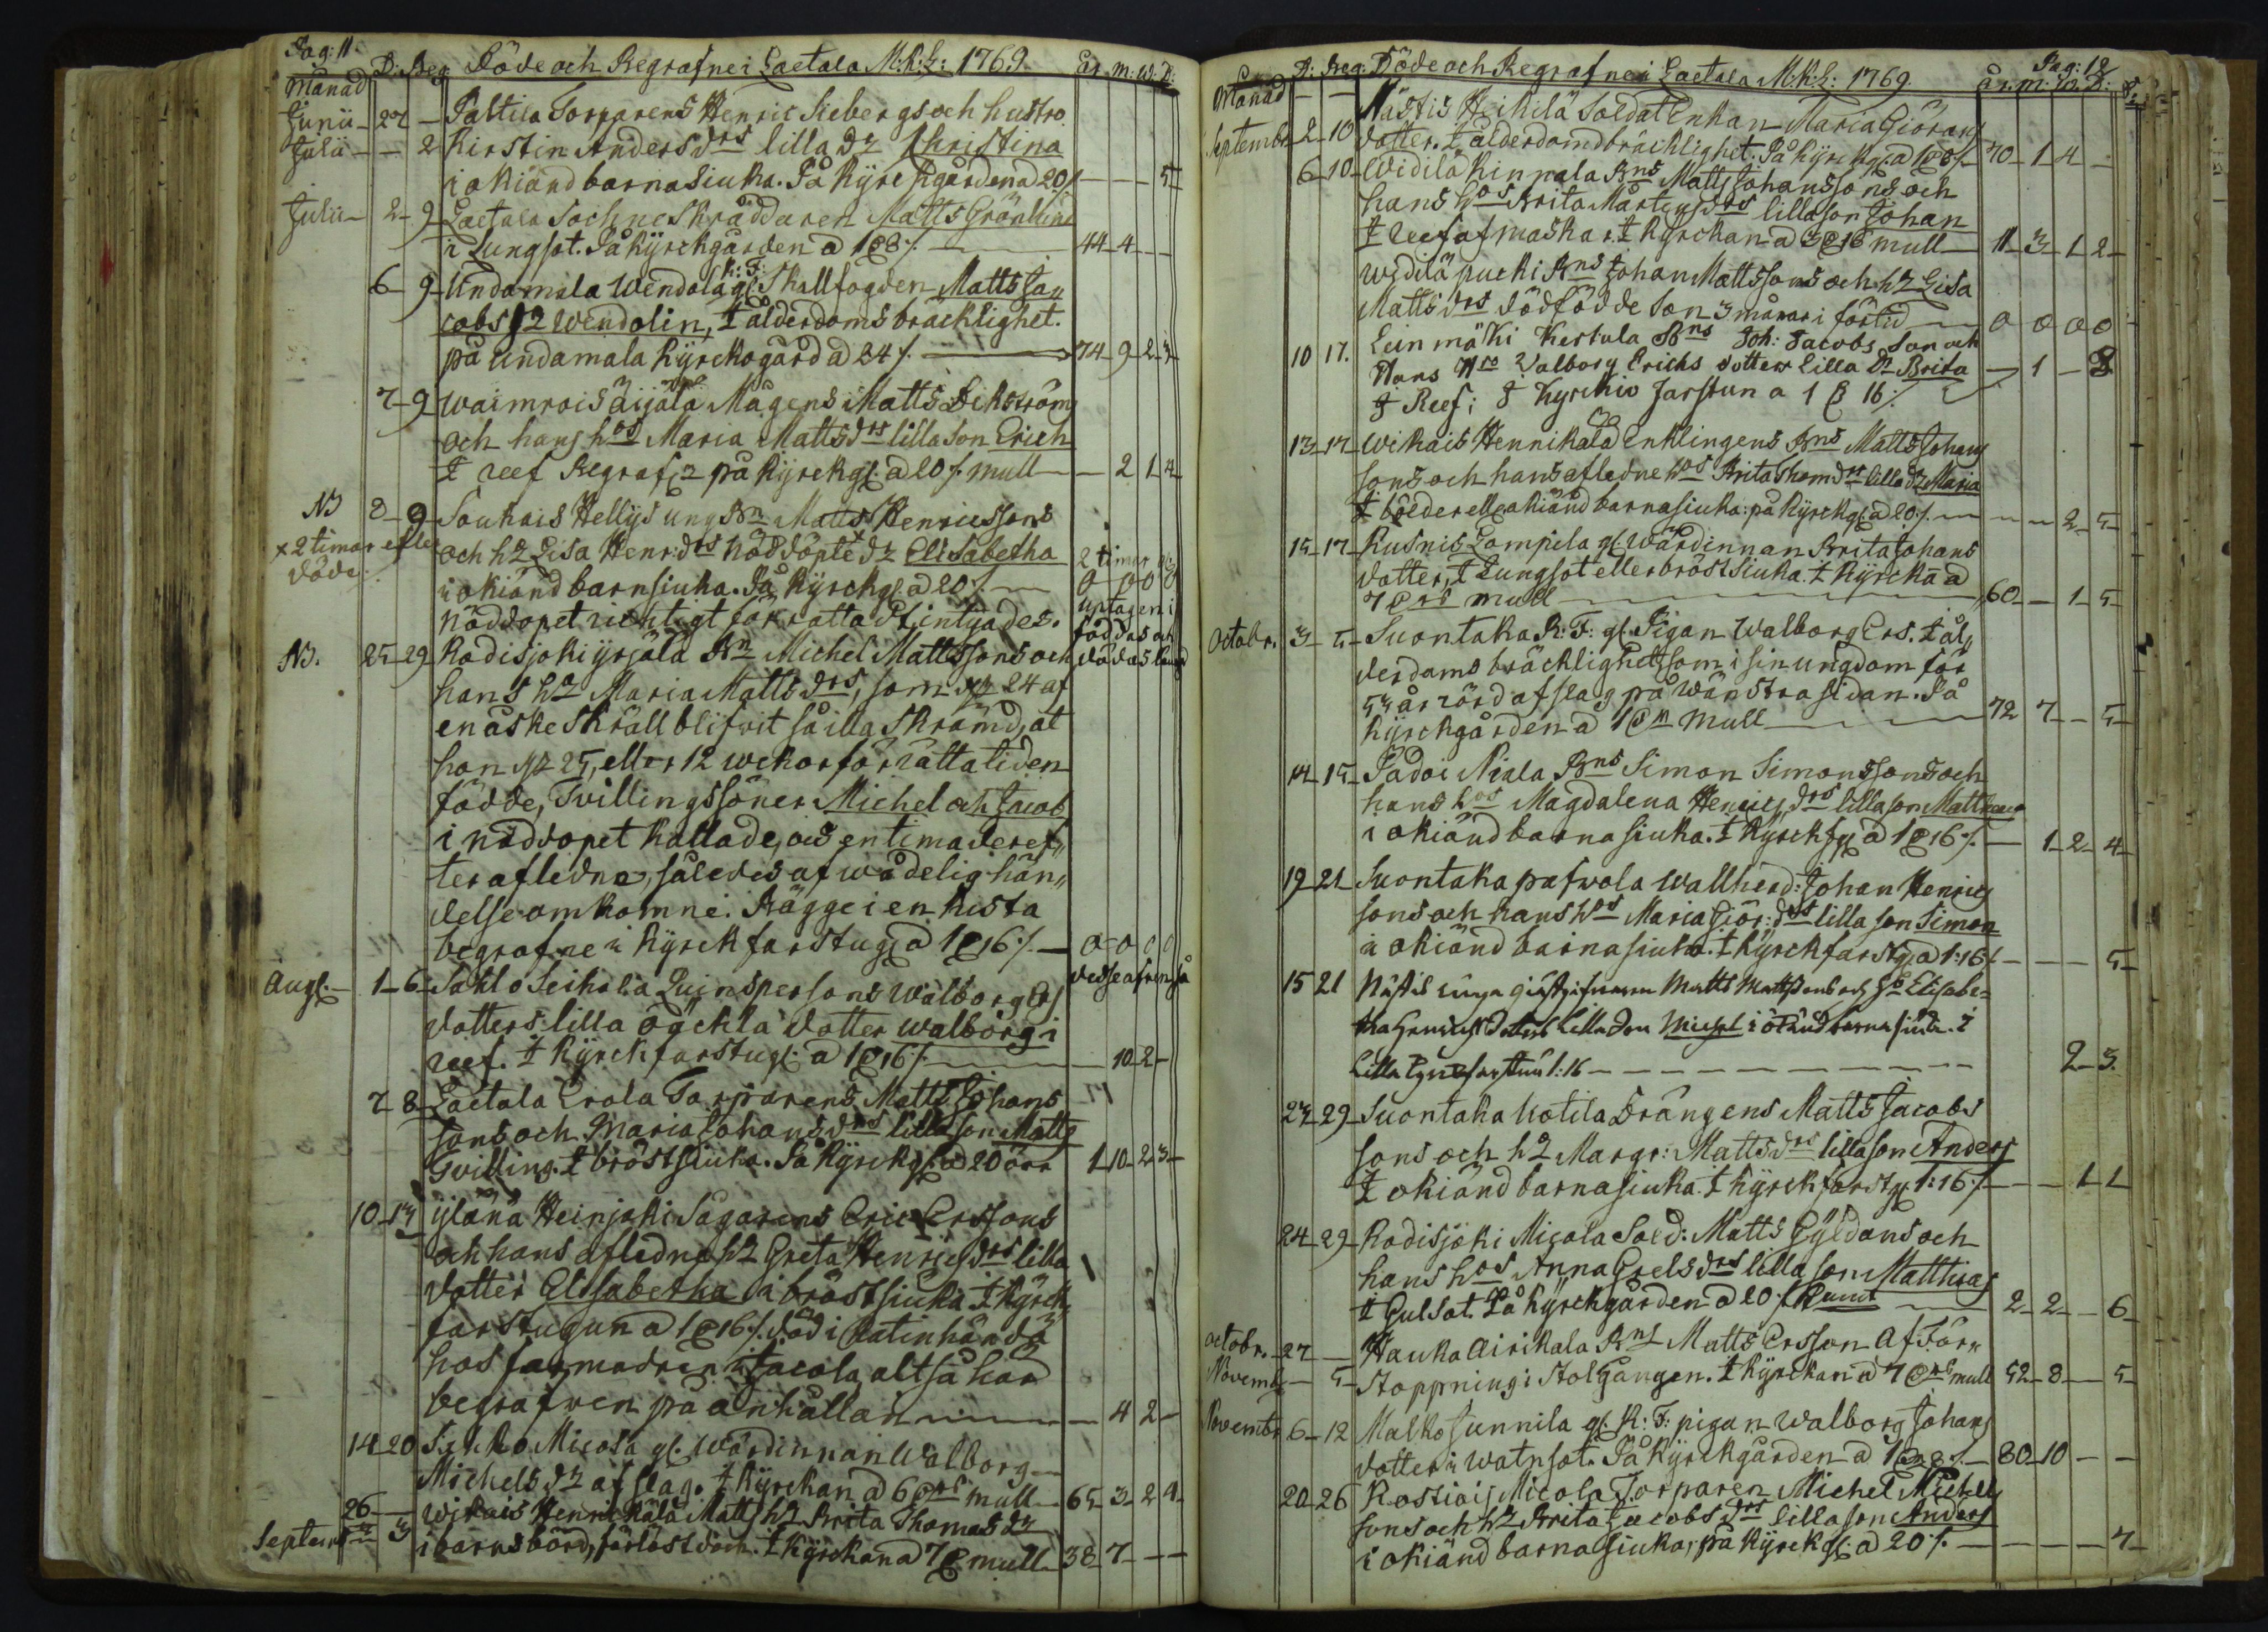 Pag: 11.
Månad D: Beg Döde och Begrafne i Laetala M:K:L: 1769. år. m: w: D:
Junii 27 – Paltila Torparens Henric Siebergs och hustro
Julii – 2 Kirstin Andersdrs lilla dr Christina
i okiänd barnasiuka. På kÿrckgården a 20 /. – – – 5
Julii – 2 – 9 Laetala Sochneskräddaren Matts Grönlund
i Lungsot. På kÿrckgården a 1 8 /. 44 – 4 – –
6 – 9 Undamala Wendola gl. K: F: Skallfogden Matts Jacobs
Wendolin, I ålderdoms bräcklighet.
på Undamala kÿrckogård a 24 /. 74 – 9 – 2 –
7 – 9 Waimrois äijälä Mågens Matts Ekström
och hans hos Maria Mattsdrs lilla son Erich
I reef Begrafn på kÿrckg. a 20 /. mull – 2 1 4
NB 8 – 9 Soukais Hellÿs ung Bn Matts Henricssons
x 2 timar efter och hr Lisa Henr:drs nöddöpte dr Elisabetha 2 timar
döde. i okiänd barnsiuka. På kÿrckg. a 20 /. 0 0 0 0
nöddopet richtigt förrättadt intygades.
NB. 25 – 29 Kodisjoki ÿrjälä Bn Michel Mattssons och föddas och
hans ho Maria Mattsdrs, som 24 af
en åskeskräll blifwit så illa skrämd, at
hon 25, eller 12 wekor för rätta tiden
födde, Tvillingssöner Michel och Jacob
i nöddopet kallade, och en tima deref„
ter afledne, således af wådelig hän„
delse omkomne. Bägge i en kista
begrafne i kÿrckfarstug. a 1 16 /. 0 – 0 0 0
Aug. – 1 – 6 Sahlo Seikola Quinspersons Walborg
dotters lilla oäckta dotter Walborg i
reef. I kÿrckfarstug: a 1 16 /. – 10 – 2 –
7 – 8 Laetala Erola Torparens Matts Johans
sons och Maria Johansdrs lilla son Matts
Tvilling. I bröstsiuka. På kÿrckg. a 20 öre 1 – 10 – 2 3 –
10 – 13 ÿläna Heinjoki Sågarens Eric Erssons
och hans afledna hr Greta Henricsdrs lilla
dotter Elisabetha i bröstsiuka. I kÿrck
farstugun a 1 16 /. död i Katinhändä
hos farmodren i Jacola altså här
begrafwen på anhållan – 4 2 –
14 20 Micola gl. Wärdinnan Walborg
Michelsdr af slag. I kÿrckan a 6 mull – 65 – 3 – 2 4 –
26 – Wikais Hennikälä Matts hr Brita Thomasdr
Septem 3 i barnsbörd, förlöst död. I kÿrckan a 7 mull – 38 – 7 – – –
Pag: 12
Månad D: Beg: Döde och Begrafne i Laetala M:K:L: 1769. år. m: w: D:
Septembr 2 – 10 Nästis Heikilä Soldat Enkan Maria Giörans
dotter. I ålderdomsbräcklighet. På kÿrckg. a 1 8 /. 70 – 1 4 –
6 – 10 Widilä Kinnala Bns Matts Johanssons och
hans hos Brita Mårtensdrs lilla son Johan
I reef af maskar. I kÿrckan a 3 16 mull – 11 – 3 – 1 2 –
Widilä pucki Bns Johan Mattssons och hr Lisa
Mattsdrs dödfödde son 3 månar i förtid 0 0 0 0
10 17. Lein mäki Kertula Bns Joh: Jacobs Son och
Hans Hro Walborg Erichs dotter lilla Dr Brita – 1 – 8
I Reef; I Kyrckio farstun a 1 16 /.
13 – 17 Wikais Hennikälä Enklingens Bns Matts Johans
sons och hans afledne hos Brita Thomdrs lilla dr Maria
I bölder eller okiänd barnasiuka: på kÿrckg. a 20 /. – – 2 – 5
15 – 17 Kusnis Lampela gl. Wärdinnan Brita Johans
dotter, I Lungsot eller bröstsiuka. I kÿrckan a
7 mull 60 – 1 – 5
Octobr. 3 – 5 Suontaka K: F: gl. Pigan Walborg Ers. I ål„
derdoms bräcklighet, som i sin ungdom för
53 år rörd af slag på wänstra sidan. På
kÿrckgården a 1 mull 72 7 – 5 –
14 – 15 Padoi Niala Bns Simon Simonssons och
hans hos Magdalena Henricsdrs lilla son Matthias
i okiänd barnasiuka. I kÿrckf a 1 16 /. – 1 – 2 – 4 –
19 21 Suontaka pafwola Wallherd: Johan Henrics
sons och hans hos Maria Giör:drs lilla son Simon
i okiänd barnasiuka. I kÿrckfarst. a 1:16 /. – – – 5 –
15 21 Nästis giästgifwaren Matts Mattssons och Hr Elisabe=
tha Henricsdotters lilla son Michel i okänd barnasiuka. I
lilla kyrckfarstun 1:16 – – – 2 – 3.
23 29 Suontaka kotila Drängens Matts Jacobs
sons och hr Margr: Mattsdrs lilla son Anders
I okiänd barnasiuka. I kÿrckfarst. 1:16 /. – – – 1 – 1
24 – 29 Kodisjoki Micola Sold: Matts Gÿldans och
hans hos Anna Grelsdrs lilla son Matthias
I Gulsot. På kÿrckgården a 20 /. 2 – 2 – – 6
Octobr. 27 – Hauka Airikala Bns Matts Ersson Af För„
Novembr – 5 stoppning i Stolgången. I kÿrckan a 7 mull 52 – 8 – – 5
Novembr 6 – 12 Malko Sunnila gl. K: F: pigan Walborg Johans
dotter i watnsot. På kÿrckgården a 1 8 /. – 80 – 10 – –
20 26 Kostiois Micola Torparen Michel Michels
sons och hr Brita Jacobsdrs lilla son Anders
i okiänd barnasiuka, på kÿrckg. a 20 /. – – – – 7 –